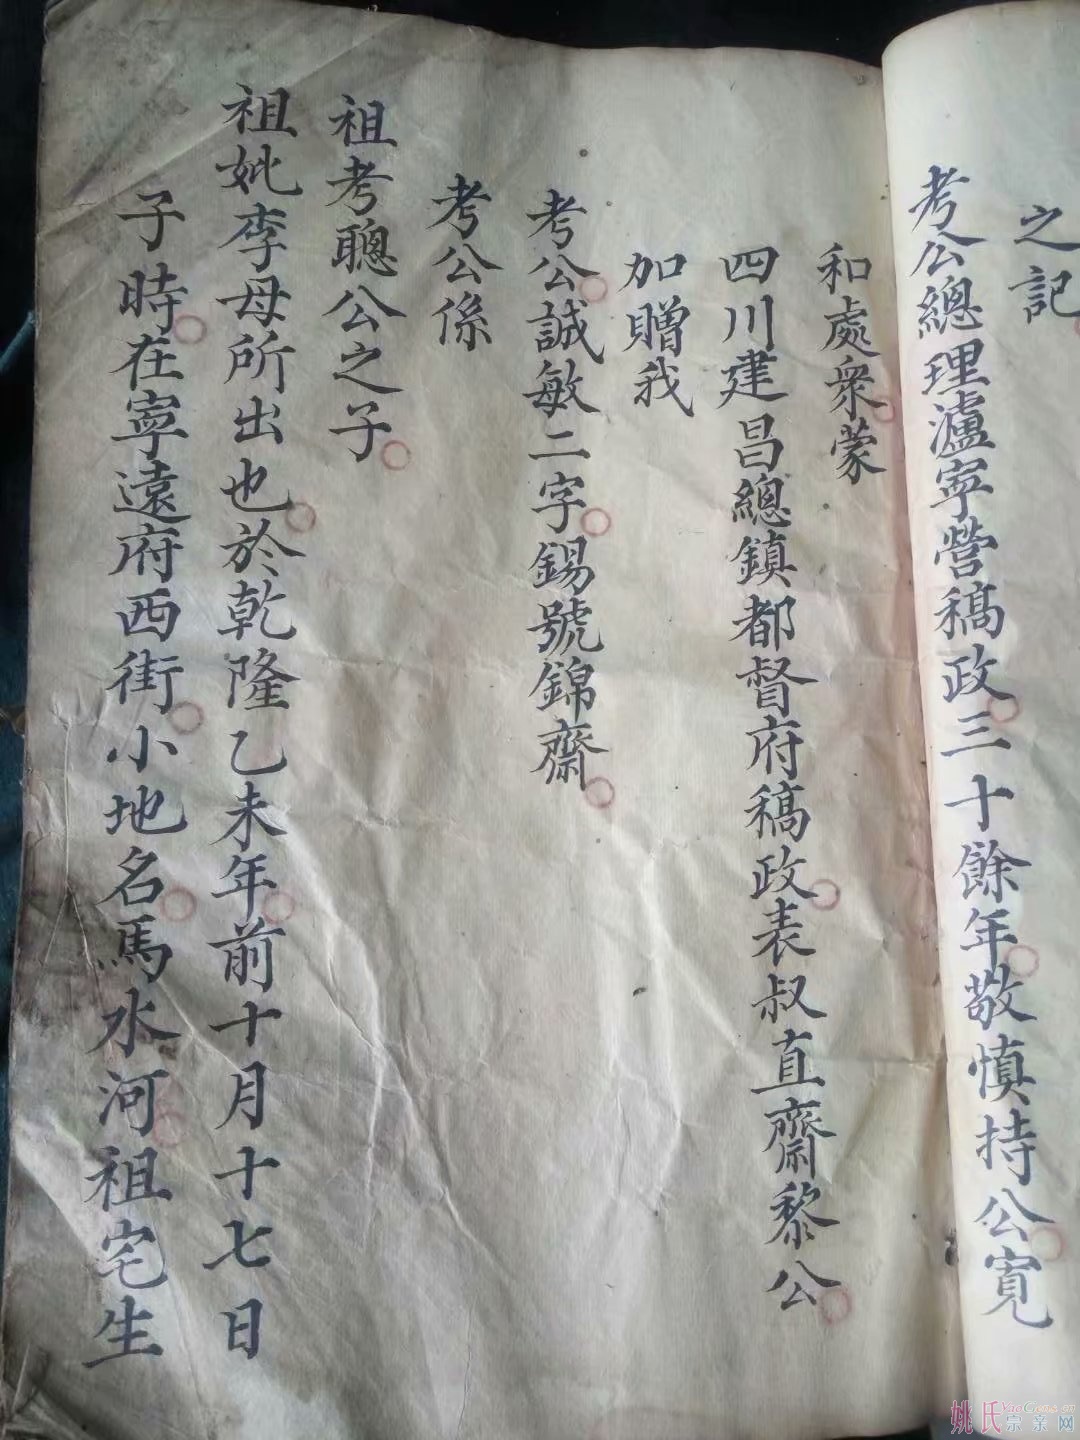 之記
考公總理瀘寧營稿政三十餘年敬慎持公寬
和處衆蒙
四川建昌總鎮都督府稿政表叔直齋黎公
加贈我
考公誠敏二字錫號錦齋
考公係
祖考聰公之子
祖妣李母所出也於乾隆乙未年前十月十七日
子時在寧遠府西街小地名馬水河祖宅生
姚氏宗亲网
YaoGens.cn